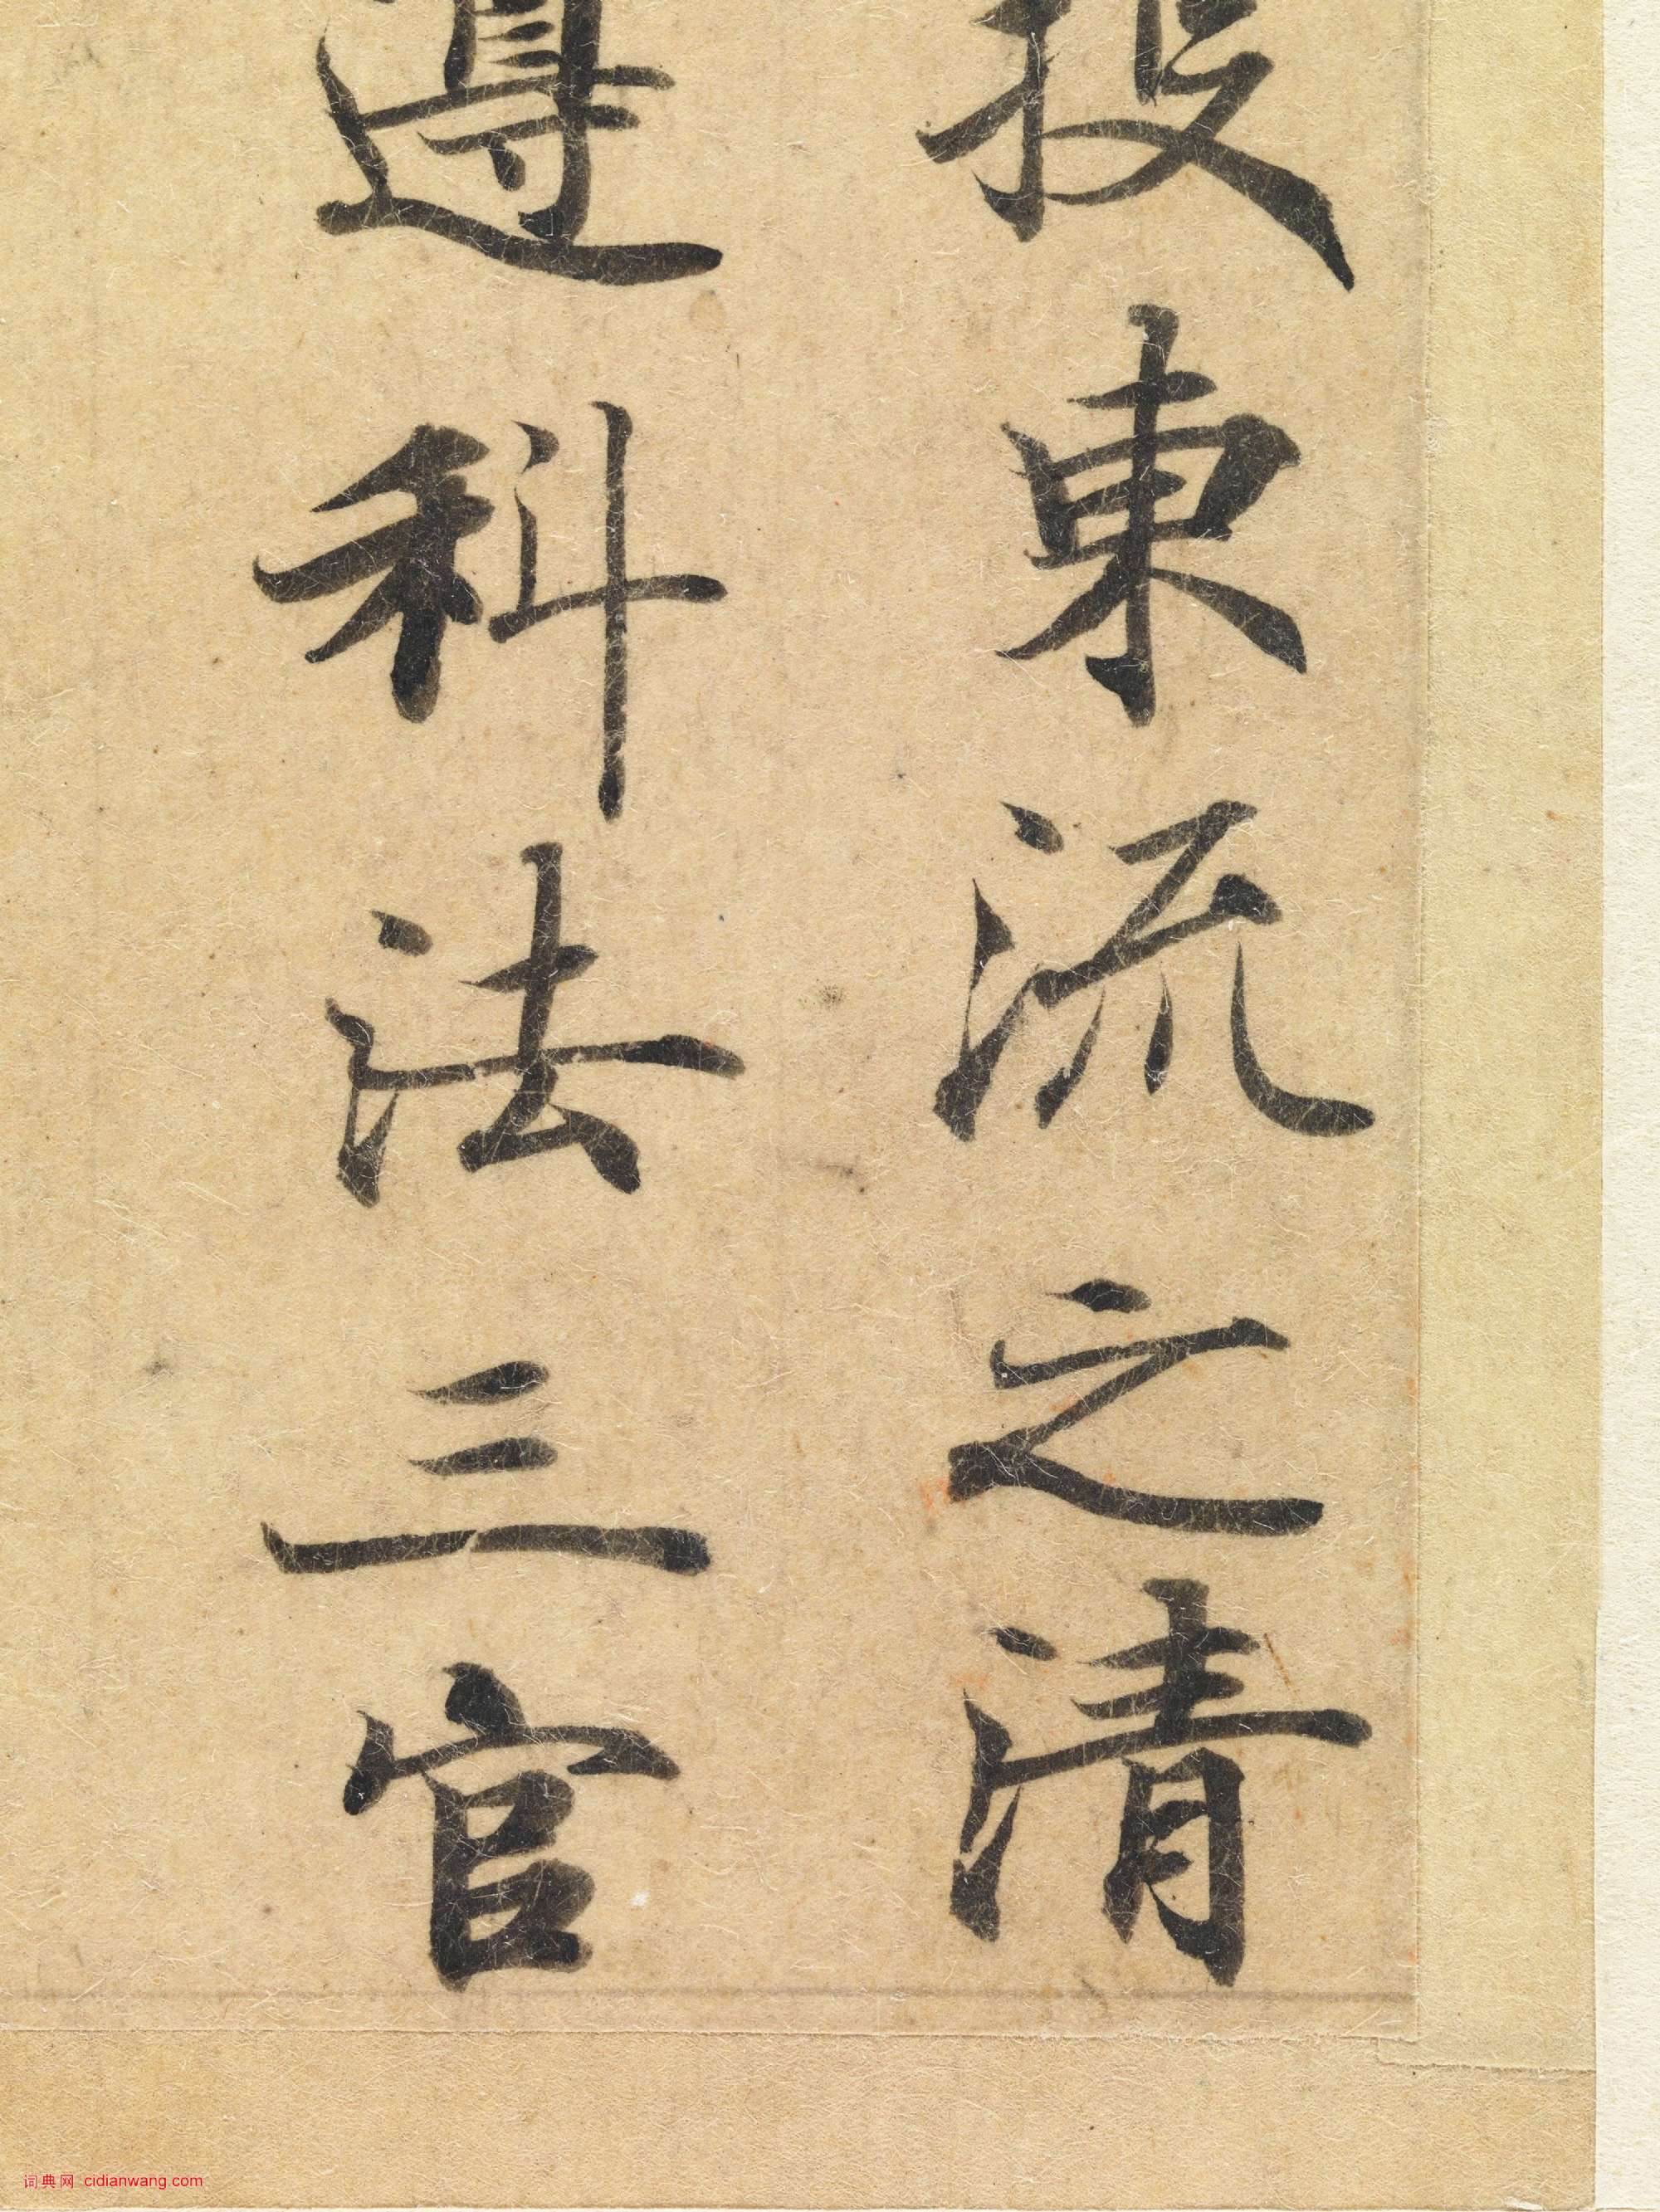 投東流之清
遵科法三官
词典网 cidianwang.com